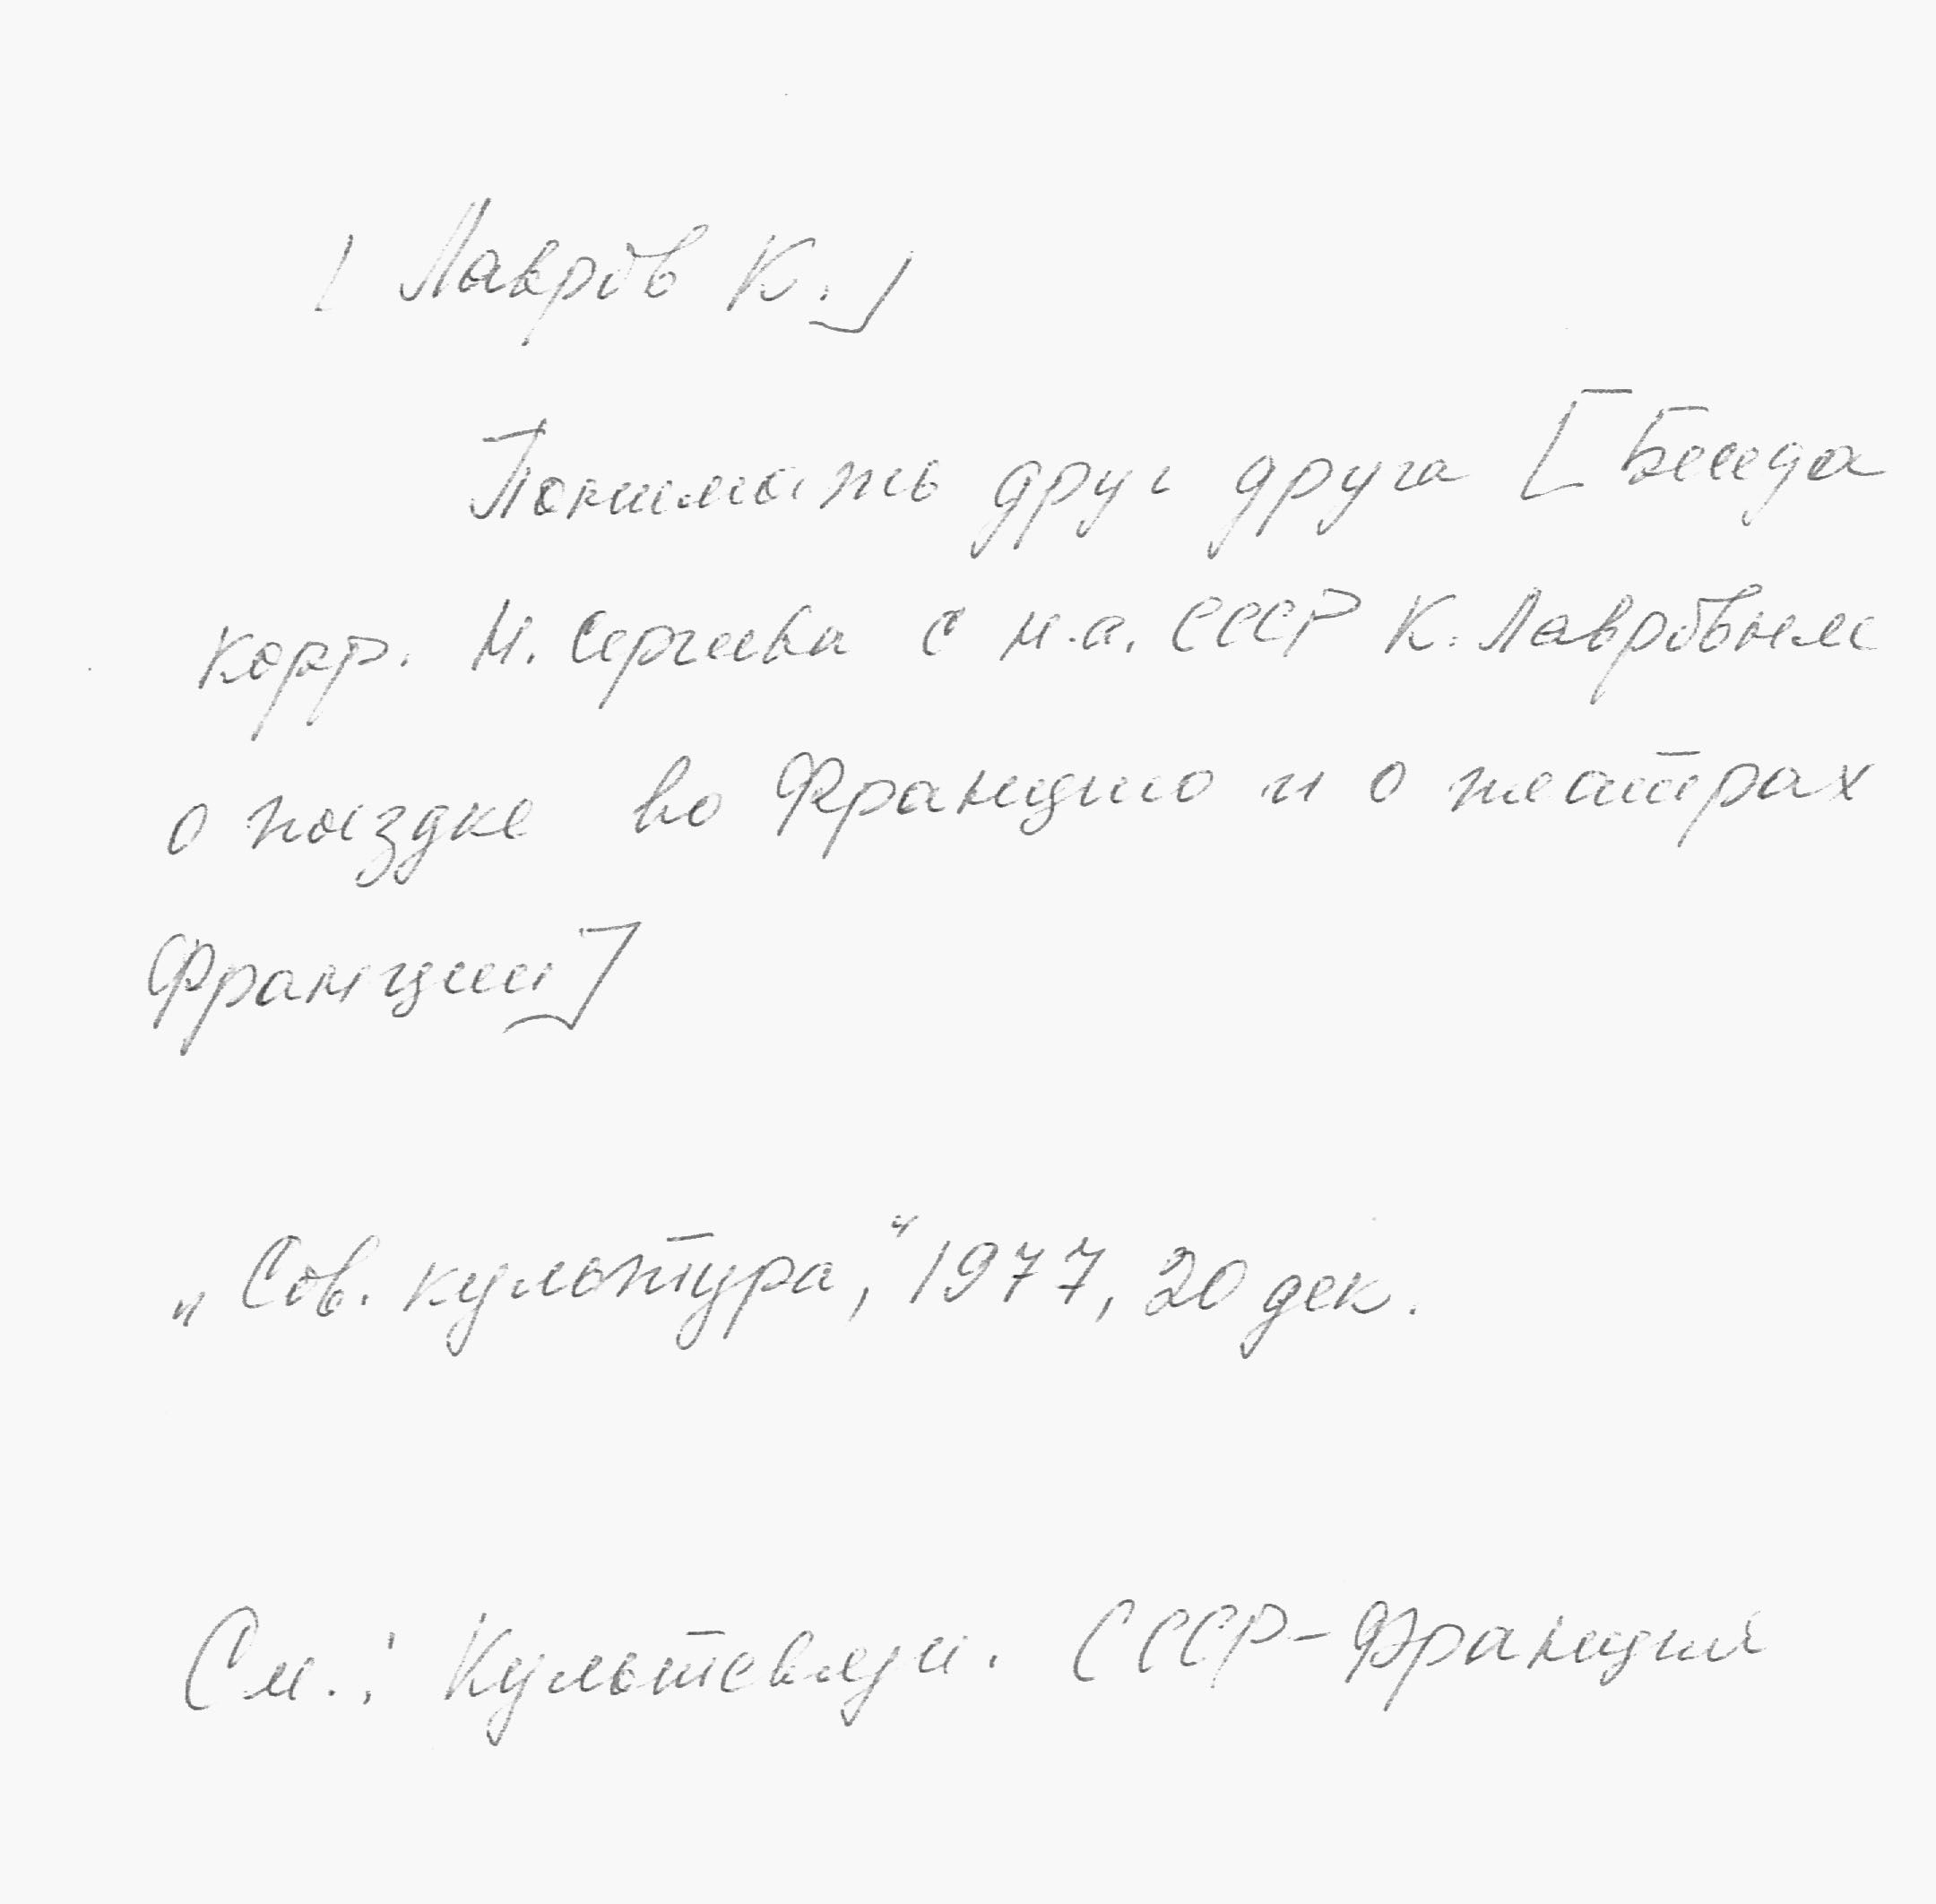 [Лавров К.]
Понимать друг друга [Беседа
корр. М. Сергеева с н.а. СССР К. Лавровым
о поездке во Францию и о театрах
Франции]
„Сов. культура," 1977, 20 дек.
См.: Культсвязи. СССР-Франция